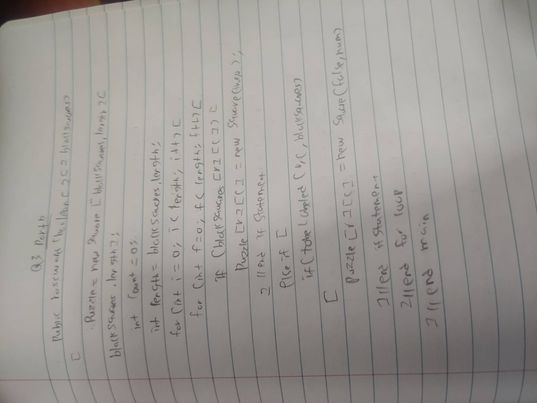 Q3 Part b
Public Crossword (boolean [ ][ ] blacksquares)
[
Puzzle = new Square [blacksquares.length] [
blacksquares.length];
int count = 0;
int length = blacksquares.length;
for (int i = 0; i < length; i++) [
for (int f = 0; f < length; f++) [
if (blacksquares [r] [c]) [
Puzzle [r] [c] = new Square (true, );
] // end if statement
else if [
if (toBeLabeled (r, c, blacksquares)
[
Puzzle [r] [c] = new Square (false, num)
] // end if statement
] // end for loop
] // end main